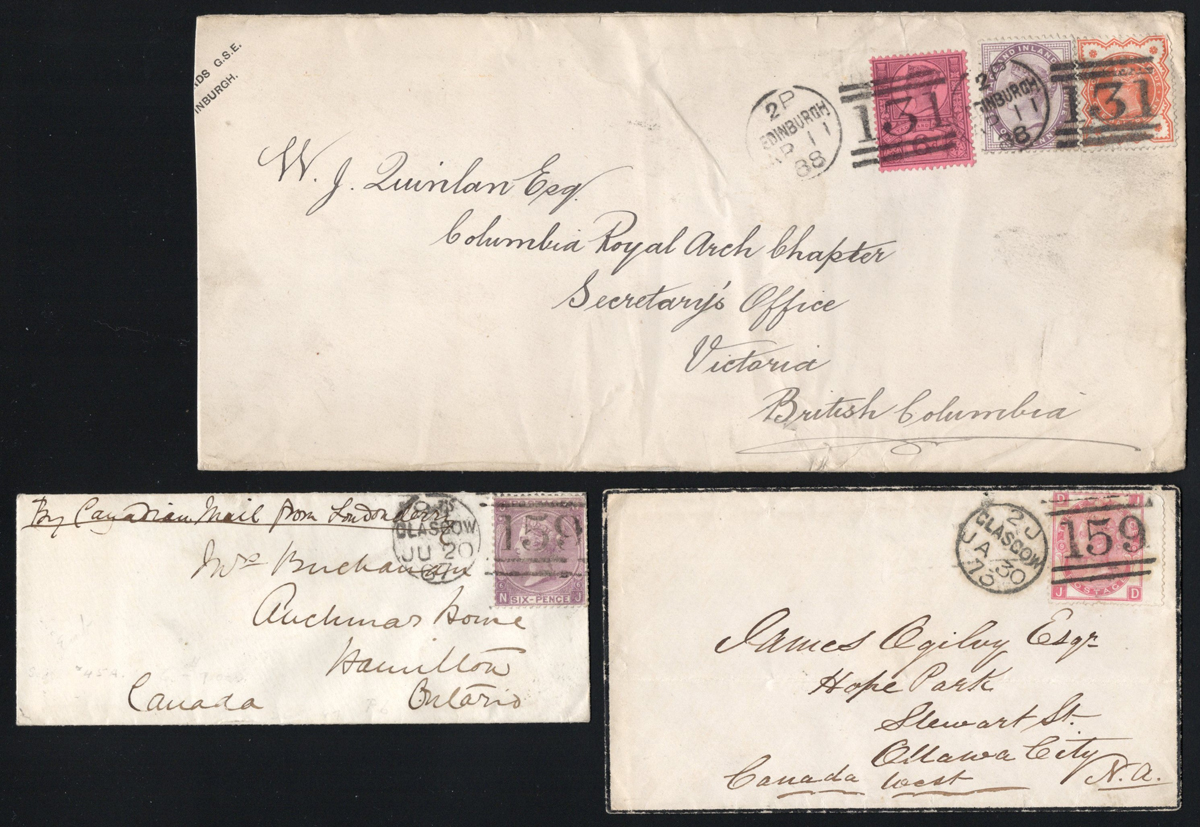 IDS G.S.E.
INBURGH.
2P
EDINBURGH
AP 11
88
131
EDINBURGH
11
88
131
W. J. Quinlan Esq.
Columbia Royal Arch Chapter
Secretary's Office
Victoria
British Columbia
By Canadian Mail from London
GLASGOW
JU 20
159
N SIX-PENCE J
Mrs Buchanan
Auchmar House
Hamilton
Canada Ontario
2J
GLASGOW
JA 30
73
159
J D
POSTAGE
James Ogilvy Esqr
Hope Park
Stewart St.
Ottawa City
Canada West N.A.